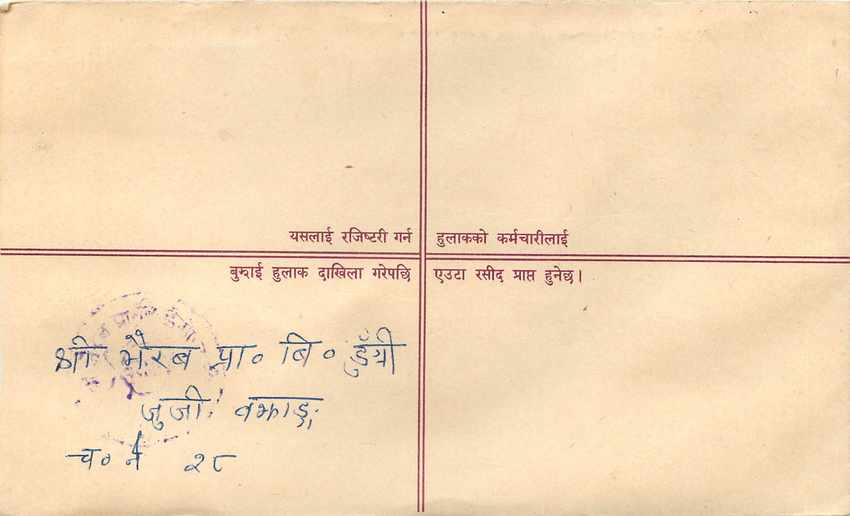 यसलाई रजिष्टरी गर्न हुलाकको कर्मचारीलाई
बुझाई हुलाक दाखिला गरेपछि एउटा रसीद प्राप्त हुनेछ।
श्री भैरब प्रा० बि० डुँग्री
जुजी बझाङ्ग
च० नं २८